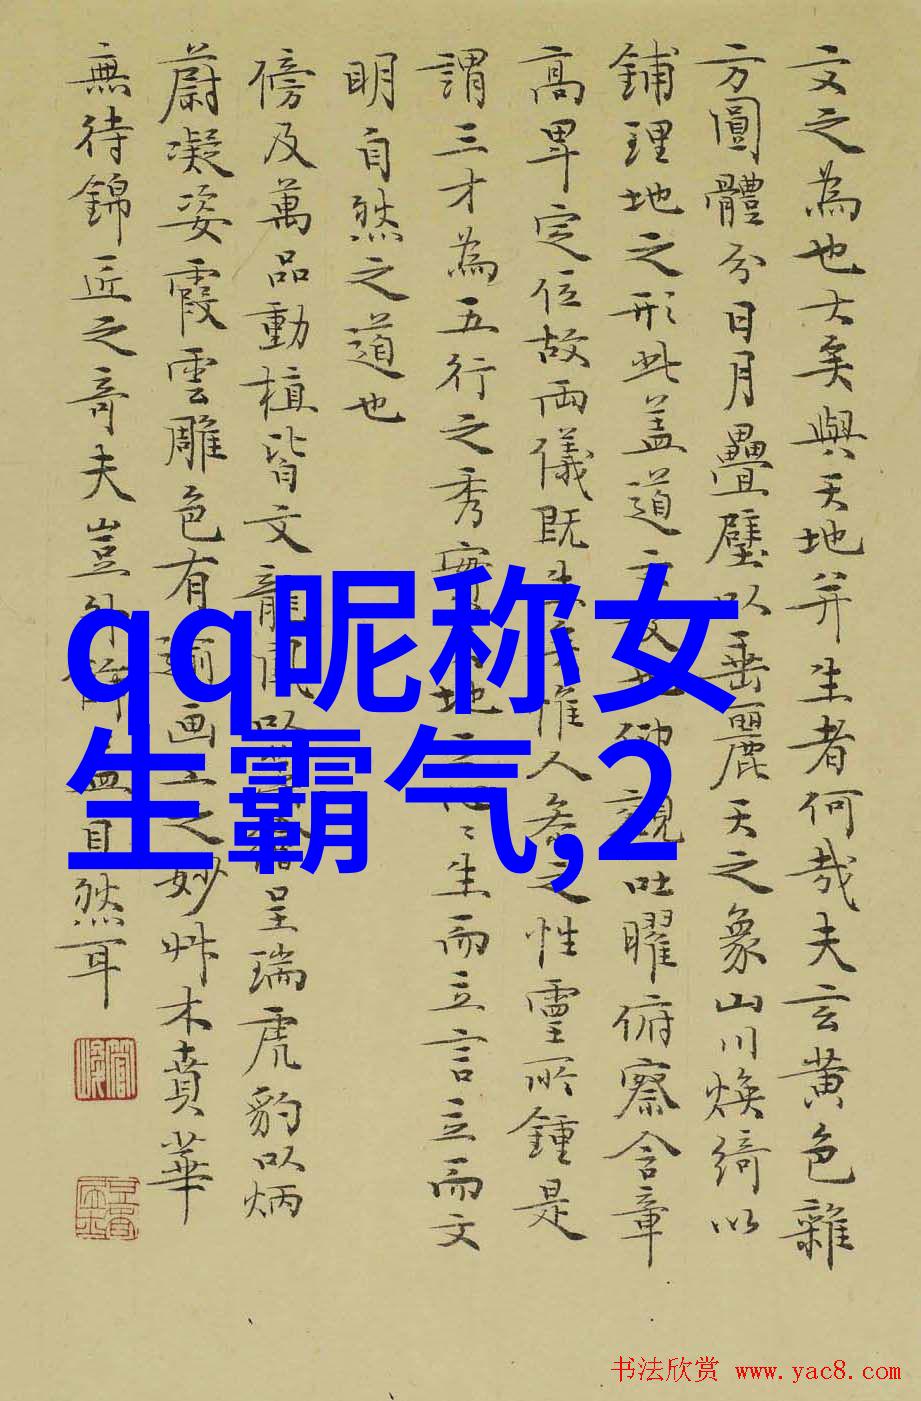 文之為也大矣與天地并生者何哉夫玄黄色雜
方圓體分日月疊璧以垂麗天之象山川煥綺以
鋪理地之形此盖道文也仰觀吐曜俯察含章
高卑定位故兩儀既生惟人參之性靈所鍾是
謂三才為五行之秀地之心〻生而立言立而文
明自然之道也
傍及萬品動植皆文龍鳳以呈瑞虎豹以炳
蔚凝姿霞雲雕色有逾画工之妙艸木賁華
無待錦匠之奇夫豈外飾盖自然耳
qq昵称女
生霸气,2
书法欣赏 www.yac8.com